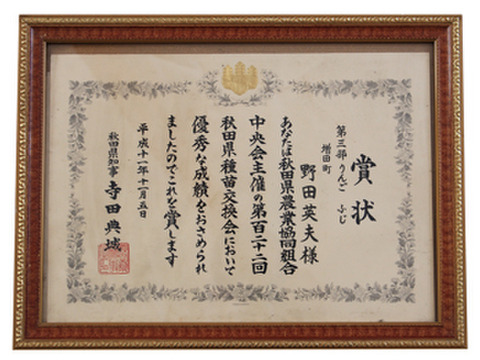 賞状
第三部りんご ふじ
増田町
野田英夫様
あなたは秋田県農業協同組合
中央会主催の第百二十二回
秋田県種苗交換会において
優秀な成績をおさめられ
ましたのでこれを賞します
平成十一年十一月五日
秋田県知事 寺田典城